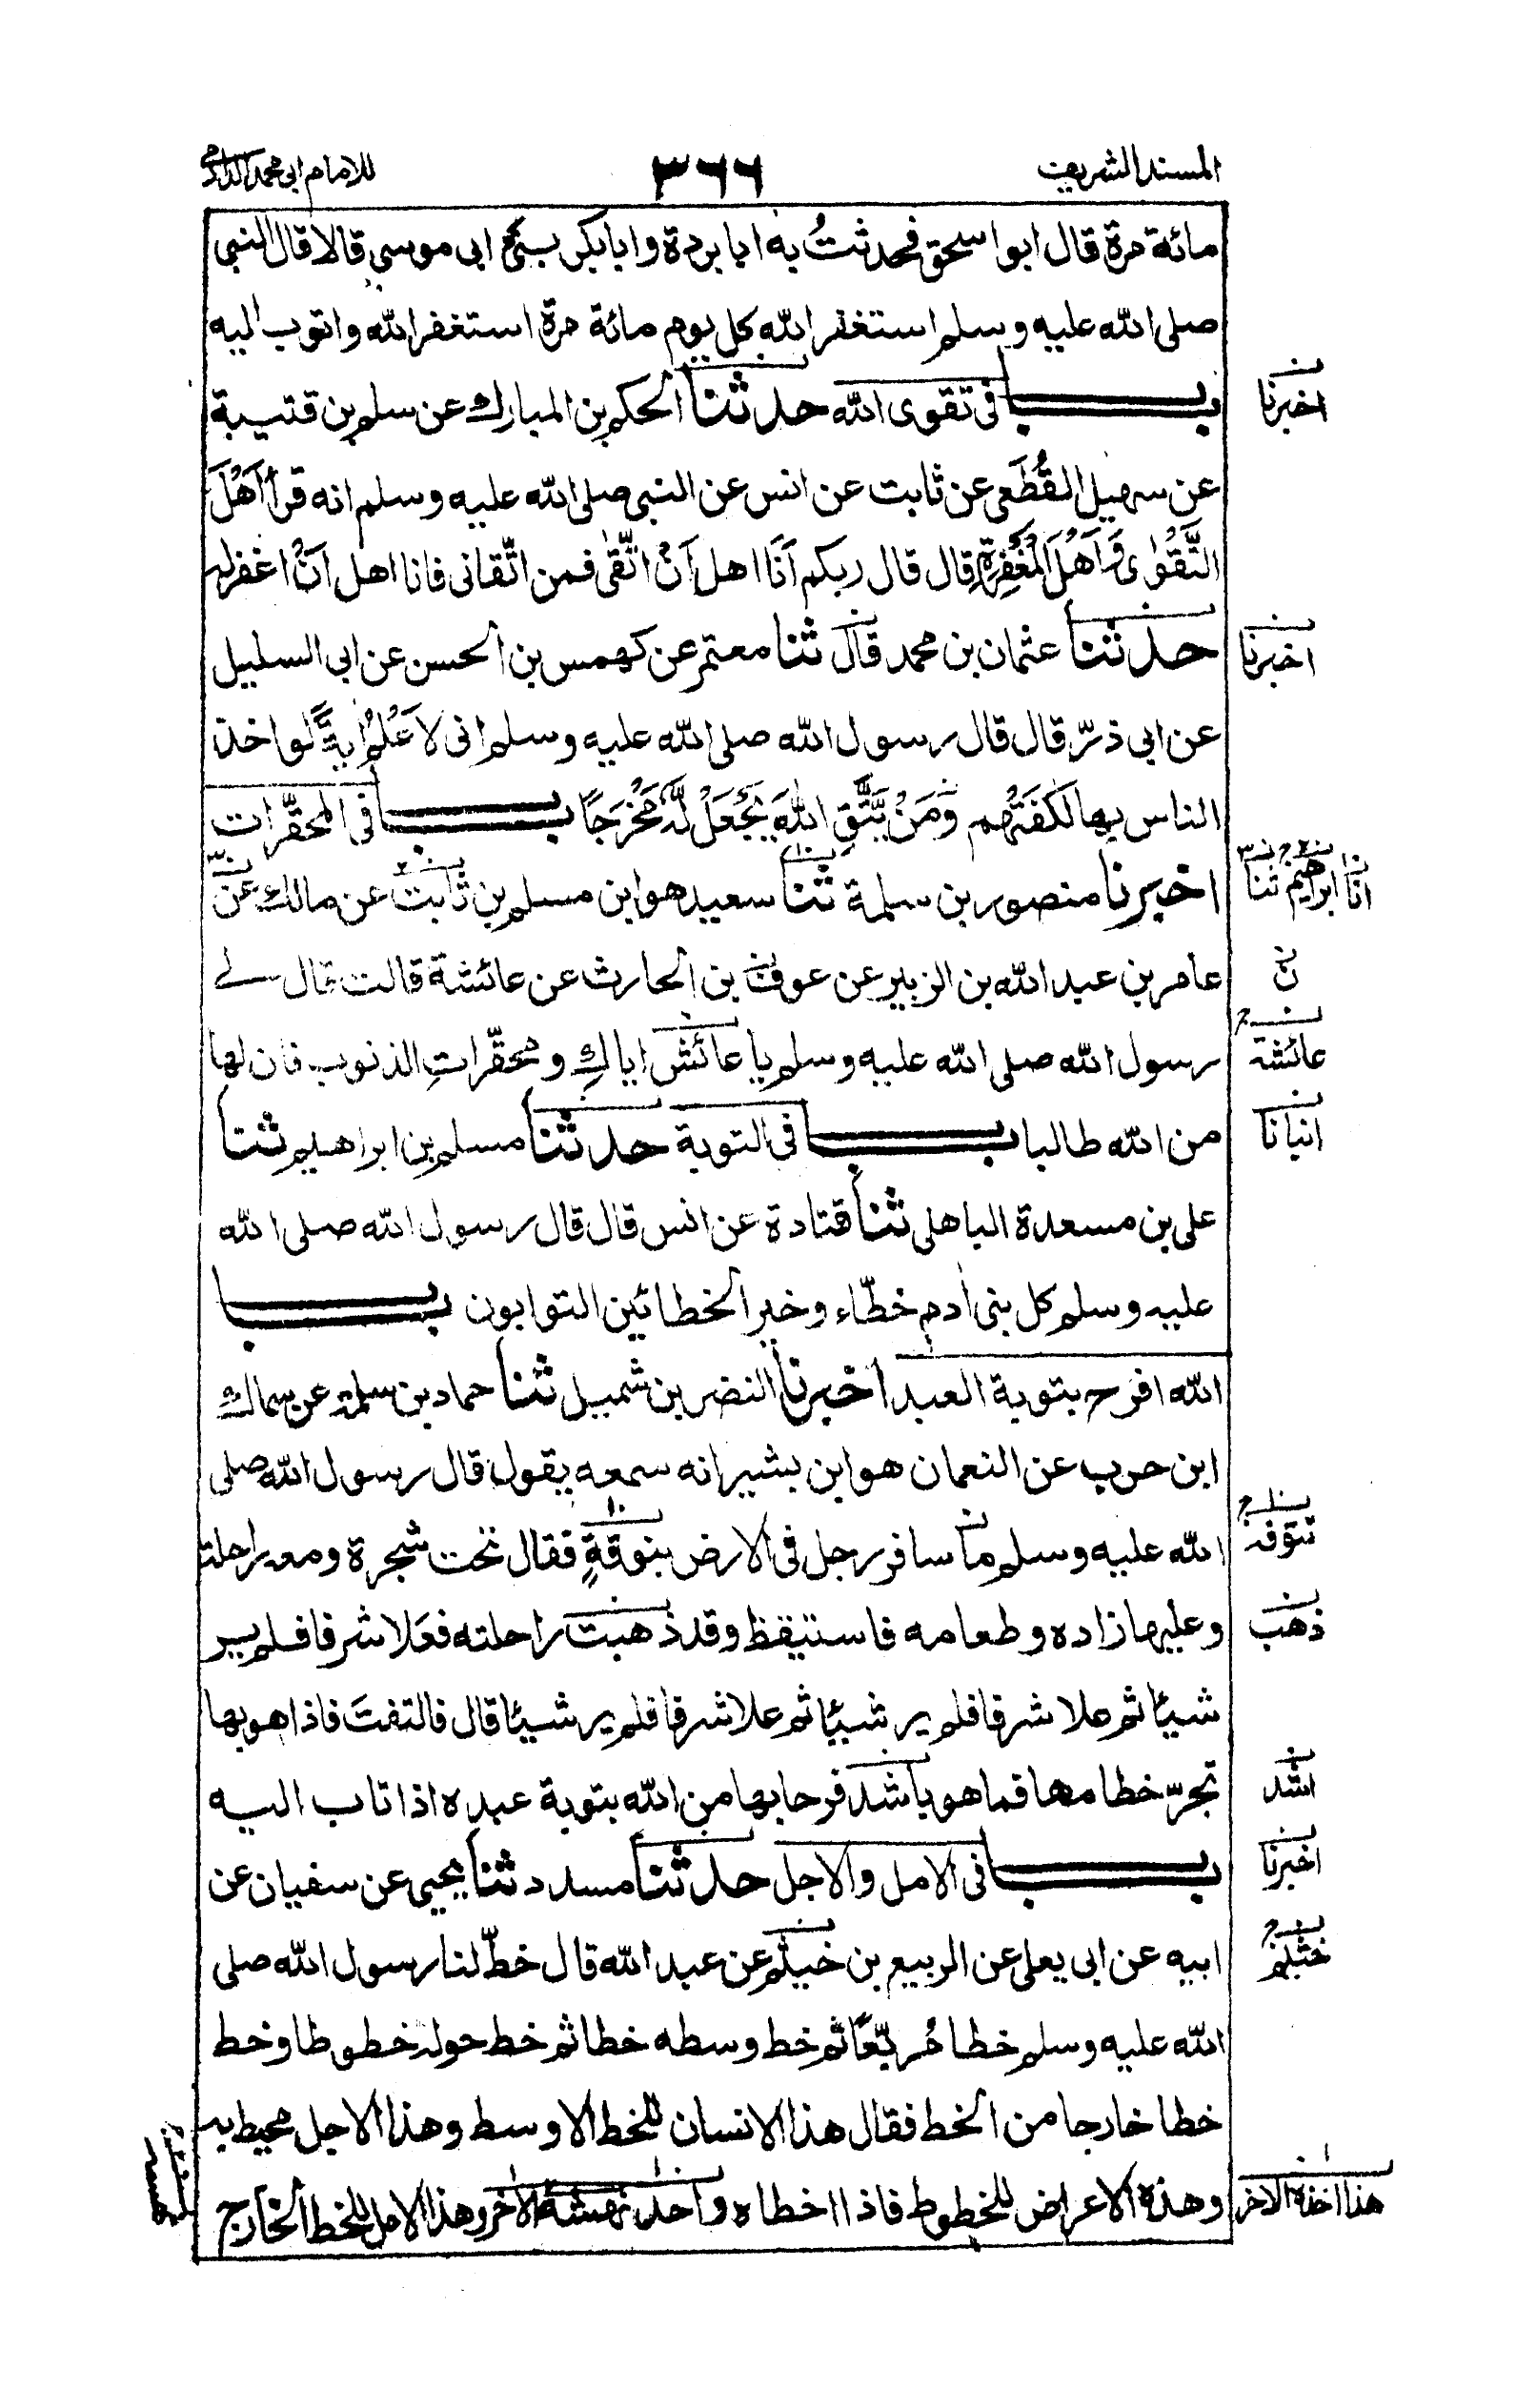 المسند الشريف ٣٦٦ للامام ابى محمد الدارمى
مائة مرة قال ابو اسحق فحدثتُ به ابا بردة وابا بكر بنى ابى موسى قالا قال النبى
صلى الله عليه وسلم استغفر الله كل يوم مائة مرة استغفر الله واتوب اليه
باب فى تقوى الله حدثنا الحكم بن المبارك عن سلم بن قتيبة
اخبرنا
عن سهيل القُطَعى عن ثابت عن انس عن النبى صلى الله عليه وسلم انه قرأ اَهْلَ
التَّقْوٰى وَاَهْلَ الْمَغْفِرَةِ قال قال ربكم اَنَا اهل اَنْ اتَّقٰى فمن اتّقانى فانا اهل اَنْ اغفر له
حدثنا عثمان بن محمد قال ثنا معتمر عن كهمس بن الحسن عن ابى السليل
اخبرنا
عن ابى ذرّ قال قال رسول الله صلى الله عليه وسلم انى لاَعْلَمُ ايةً لو اخذ
الناس بها لكَفَتْهم وَمَنْ يَّتَّقِ اللّٰهَ يَجْعَلْ لَّهٗ مَخْرَجًا باب فى المحقّرات
اخبرنا منصور بن سلمة ثنا سعيد هو ابن مسلم بن ثابت عن مالك عن
انا ابراهيم ثنا
عامر بن عبد الله بن الزبير عن عوف بن الحارث عن عائشة قالت قال لى
رسول الله صلى الله عليه وسلم يا عائش اياكِ ومحقّراتِ الذنوب فان لها
عائشة
من الله طالبا باب فى التوبة حدثنا مسلم بن ابراهيم ثنا
انبانا
على بن مسعدة الباهلى ثنا قتادة عن انس قال قال رسول الله صلى الله
عليه وسلم كل بنى ادم خطّاء وخير الخطائين التوابون باب
الله افرح بتوبة العبد اخبرنا النضر بن شميل ثنا حماد بن سلمة عن سماك
ابن حرب عن النعمان هو ابن بشير انه سمعه يقول قال رسول الله صلى
الله عليه وسلم ما سافر رجل فى الارض بنوقةٍ فقال تحت شجرة ومعه راحلته
وعليها زاده وطعامه فاستيقظ وقد ذهبت راحلته فعَلا شرفا فلم ير
ذهب
شيئا ثم علا شرفا فلم ير شيئا ثم علا شرفا فلم ير شيئا قال فالتفتَ فاذا هو بها
تجرّ خطامها فما هو باشد فرحا بها من الله بتوبة عبده اذا تاب اليه
اشد
باب فى الامل والاجل حدثنا مسدد ثنا يحيى عن سفيان عن
اخبرنا
ابيه عن ابى يعلى عن الربيع بن خيثم عن عبد الله قال خطّ لنا رسول الله صلى
الله عليه وسلم خطا مُربّعًا ثم خط وسطه خطا ثم خط حوله خطوطا وخط
خطا خارجا من الخط فقال هذا الانسان للخط الاوسط وهذا الاجل محيط به
وهذه الاعراض للخطوط فاذا اخطاه واحد نهشه الاخر وهذا الامل للخط الخارج
هذا اخذه الاخر